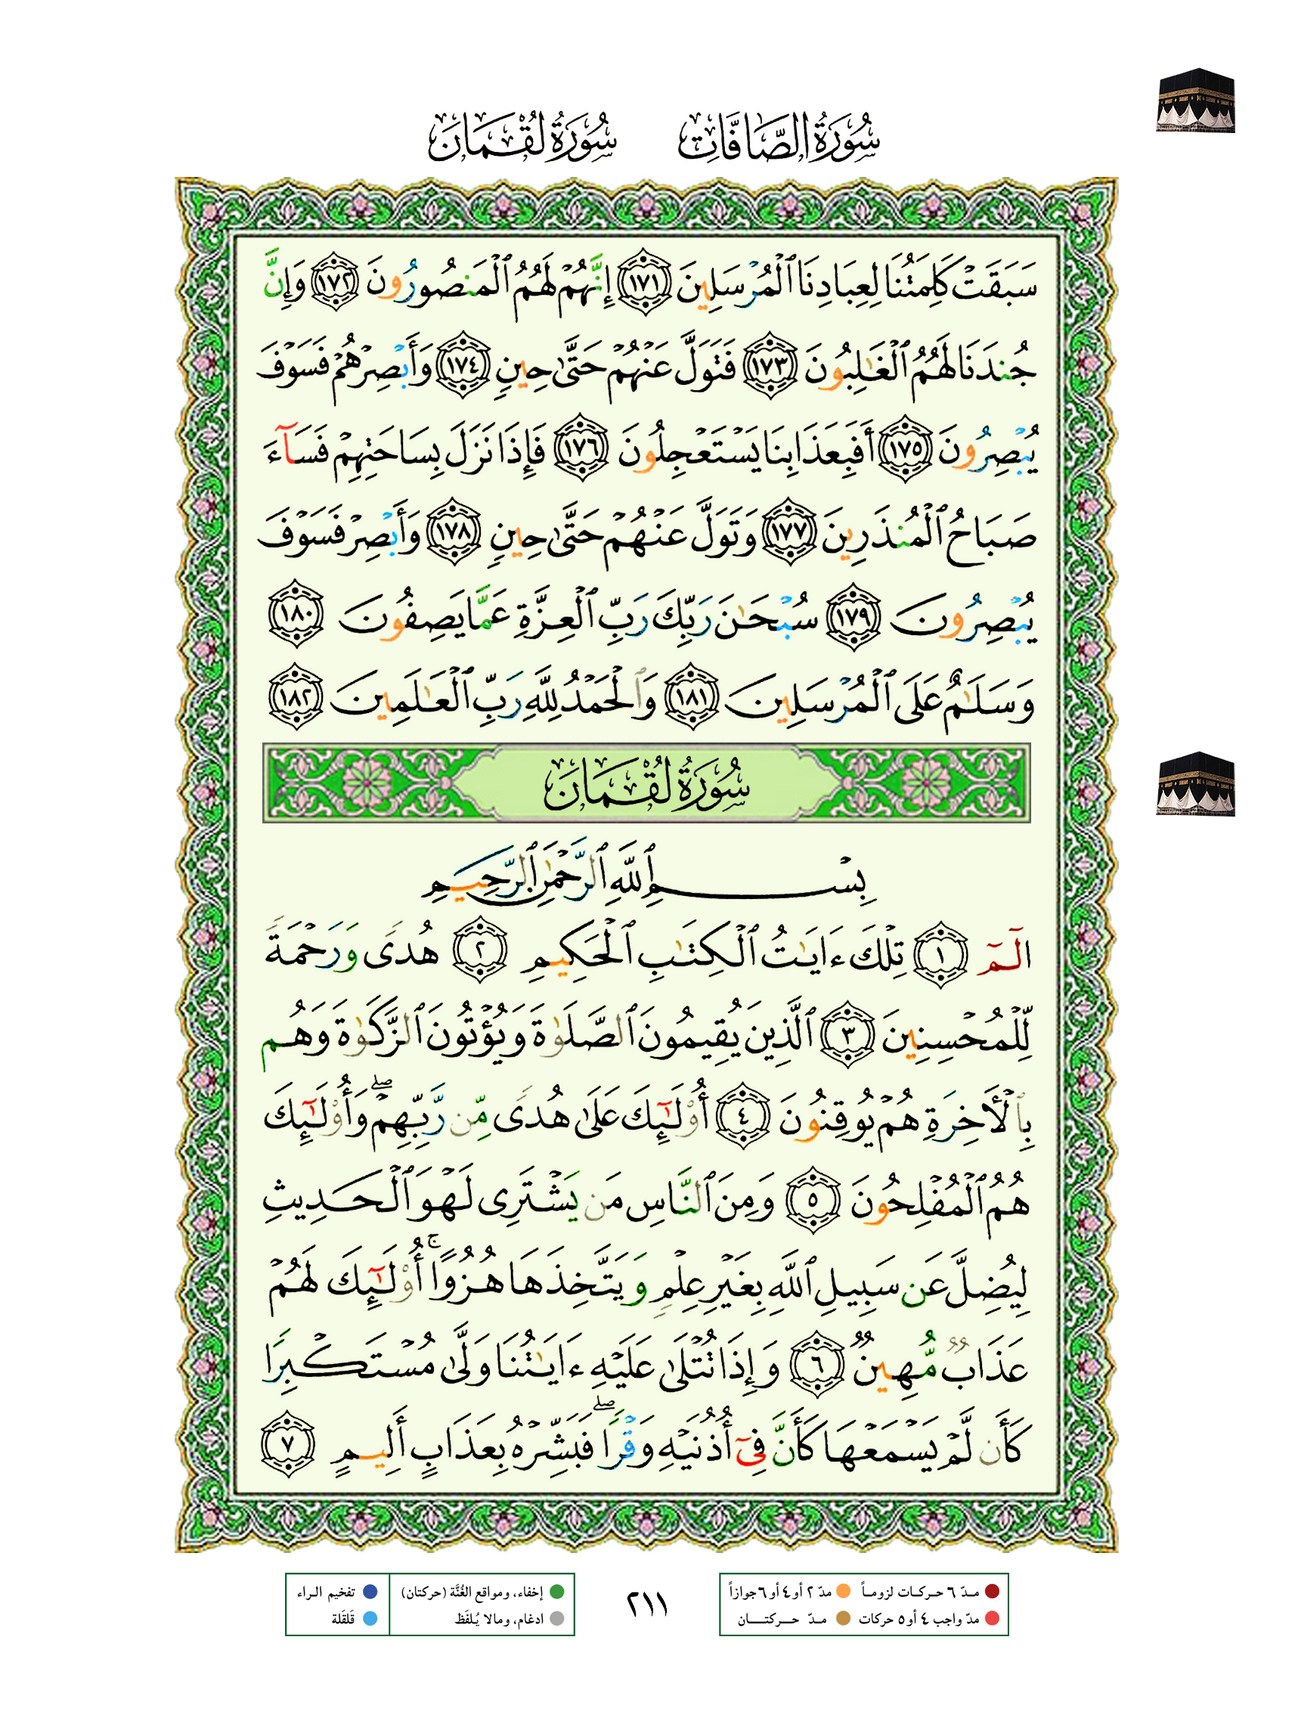 سُورَةُ الصَّافَّاتِ سُورَةُ لُقْمَانَ
سَبَقَتْ كَلِمَتُنَا لِعِبَادِنَا ٱلْمُرْسَلِينَ ١٧١ إِنَّهُمْ لَهُمُ ٱلْمَنصُورُونَ ١٧٢ وَإِنَّ
جُندَنَا لَهُمُ ٱلْغَٰلِبُونَ ١٧٣ فَتَوَلَّ عَنْهُمْ حَتَّىٰ حِينٍ ١٧٤ وَأَبْصِرْهُمْ فَسَوْفَ
يُبْصِرُونَ ١٧٥ أَفَبِعَذَابِنَا يَسْتَعْجِلُونَ ١٧٦ فَإِذَا نَزَلَ بِسَاحَتِهِمْ فَسَآءَ
صَبَاحُ ٱلْمُنذَرِينَ ١٧٧ وَتَوَلَّ عَنْهُمْ حَتَّىٰ حِينٍ ١٧٨ وَأَبْصِرْ فَسَوْفَ
يُبْصِرُونَ ١٧٩ سُبْحَٰنَ رَبِّكَ رَبِّ ٱلْعِزَّةِ عَمَّا يَصِفُونَ ١٨٠
وَسَلَٰمٌ عَلَى ٱلْمُرْسَلِينَ ١٨١ وَٱلْحَمْدُ لِلَّهِ رَبِّ ٱلْعَٰلَمِينَ ١٨٢
سُورَةُ لُقْمَانَ
بِسْمِ ٱللَّهِ ٱلرَّحْمَٰنِ ٱلرَّحِيمِ
الٓمٓ ١ تِلْكَ ءَايَٰتُ ٱلْكِتَٰبِ ٱلْحَكِيمِ ٢ هُدًى وَرَحْمَةً
لِّلْمُحْسِنِينَ ٣ ٱلَّذِينَ يُقِيمُونَ ٱلصَّلَوٰةَ وَيُؤْتُونَ ٱلزَّكَوٰةَ وَهُم
بِٱلْأَخِرَةِ هُمْ يُوقِنُونَ ٤ أُوْلَٰٓئِكَ عَلَىٰ هُدًى مِّن رَّبِّهِمْ ۖ وَأُوْلَٰٓئِكَ
هُمُ ٱلْمُفْلِحُونَ ٥ وَمِنَ ٱلنَّاسِ مَن يَشْتَرِى لَهْوَ ٱلْحَدِيثِ
لِيُضِلَّ عَن سَبِيلِ ٱللَّهِ بِغَيْرِ عِلْمٍ وَيَتَّخِذَهَا هُزُوًا ۚ أُوْلَٰٓئِكَ لَهُمْ
عَذَابٌ مُّهِينٌ ٦ وَإِذَا تُتْلَىٰ عَلَيْهِ ءَايَٰتُنَا وَلَّىٰ مُسْتَكْبِرًا
كَأَن لَّمْ يَسْمَعْهَا كَأَنَّ فِىٓ أُذُنَيْهِ وَقْرًا ۖ فَبَشِّرْهُ بِعَذَابٍ أَلِيمٍ ٧
مدّ ٦ حركات لزوماً مدّ ٢ أو ٤ أو ٦ جوازاً
مدّ واجب ٤ أو ٥ حركات مدّ حركتان
٢١١
إخفاء، ومواقع الغُنَّة (حركتان) تفخيم الراء
ادغام، ومالا يُلفَظ قَلقَلة